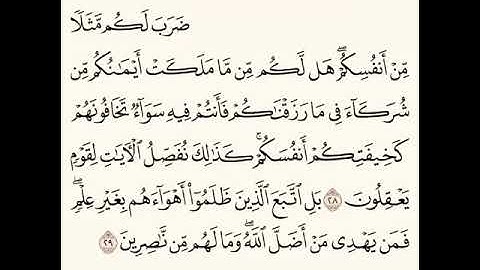 ضَرَبَ لَكُم مَّثَلًا
مِّنْ أَنفُسِكُمْ ۖ هَل لَّكُم مِّن مَّا مَلَكَتْ أَيْمَـٰنُكُم مِّن
شُرَكَآءَ فِى مَا رَزَقْنَـٰكُمْ فَأَنتُمْ فِيهِ سَوَآءٌ تَخَافُونَهُمْ
كَخِيفَتِكُمْ أَنفُسَكُمْ ۚ كَذَٰلِكَ نُفَصِّلُ ٱلْـَٔايَـٰتِ لِقَوْمٍ
يَعْقِلُونَ ٢٨ بَلِ ٱتَّبَعَ ٱلَّذِينَ ظَلَمُوٓا۟ أَهْوَآءَهُم بِغَيْرِ عِلْمٍ ۖ
فَمَن يَهْدِى مَنْ أَضَلَّ ٱللَّهُ ۖ وَمَا لَهُم مِّن نَّـٰصِرِينَ ٢٩